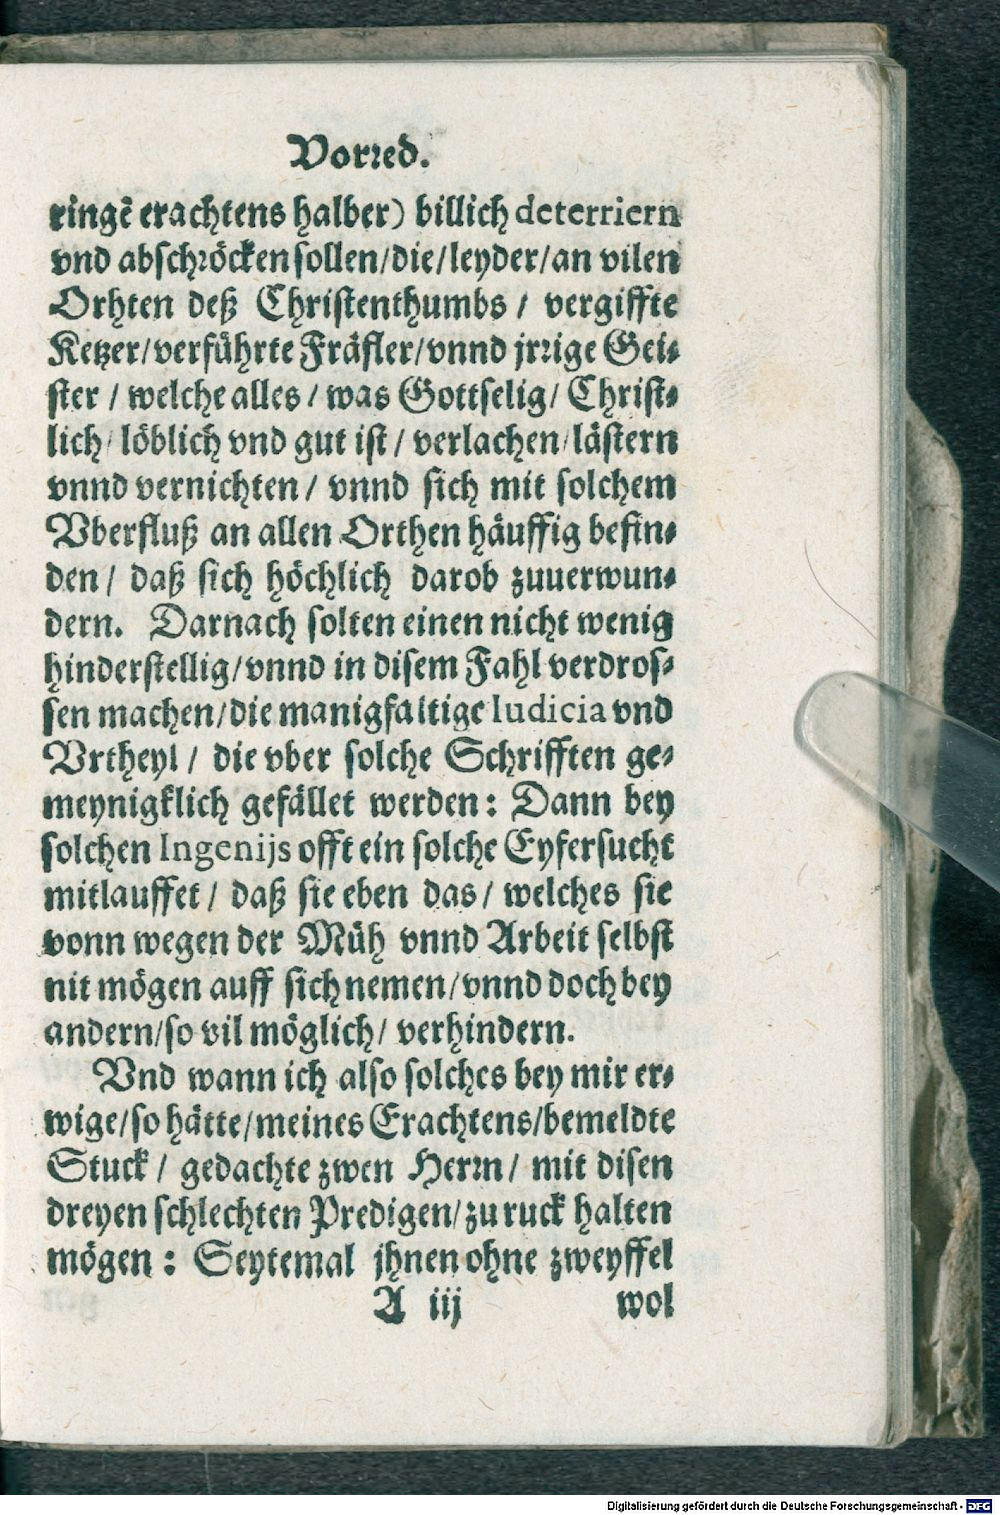 Vorred.
ringẽ erachtens halber) billich deterriern
vnd abschröcken sollen/die/leyder/an vilen
Orhten deß Christenthumbs / vergiffte
Ketzer/verführte Fräfler/vnnd jrrige Gei-
ster / welche alles / was Gottselig/ Christ-
lich/ löblich vnd gut ist / verlachen/lästern
vnnd vernichten / vnnd sich mit solchem
Vberfluß an allen Orthen häuffig befin-
den / daß sich höchlich darob zuuerwun-
dern. Darnach solten einen nicht wenig
hinderstellig/vnnd in disem Fahl verdros-
sen machen/die manigfaltige Iudicia vnd
Vrtheyl / die vber solche Schrifften ge-
meynigklich gefället werden: Dann bey
solchen Ingenijs offt ein solche Eyfersucht
mitlauffet / daß sie eben das / welches sie
vonn wegen der Müh vnnd Arbeit selbst
nit mögen auff sich nemen/vnnd doch bey
andern/so vil möglich/ verhindern.
Vnd wann ich also solches bey mir er-
wige/so hätte/meines Erachtens/bemeldte
Stuck / gedachte zwen Herrn / mit disen
dreyen schlechten Predigen/zu ruck halten
mögen: Seytemal jhnen ohne zweyffel
A iij wol
Digitalisierung gefördert durch die Deutsche Forschungsgemeinschaft - DFG